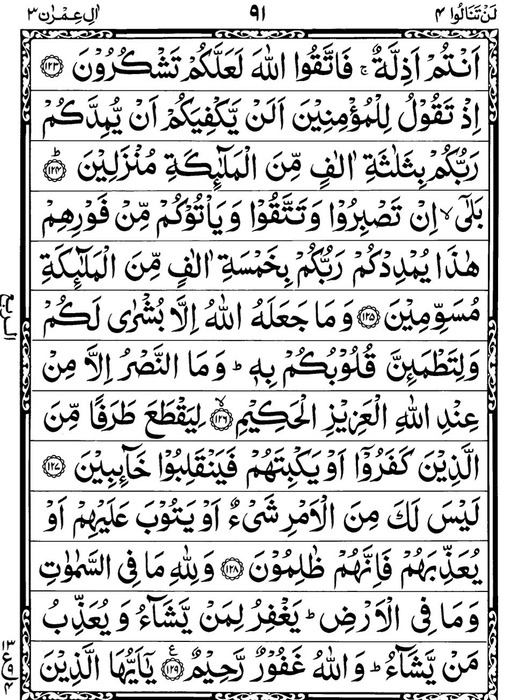 لَنْ تَنَالُوا ٤ ٩١ اٰلِ عِمْرٰن ٣
اَنْتُمْ اَذِلَّةٌ ۚ فَاتَّقُوا اللّٰهَ لَعَلَّكُمْ تَشْكُرُوْنَ ﴿١٢٣﴾
اِذْ تَقُوْلُ لِلْمُؤْمِنِيْنَ اَلَنْ يَّكْفِيَكُمْ اَنْ يُّمِدَّكُمْ
رَبُّكُمْ بِثَلٰثَةِ اٰلٰفٍ مِّنَ الْمَلٰٓئِكَةِ مُنْزَلِيْنَ ﴿١٢٤﴾ؕ
بَلٰٓى ۙ اِنْ تَصْبِرُوْا وَتَتَّقُوْا وَيَاْتُوْكُمْ مِّنْ فَوْرِهِمْ
هٰذَا يُمْدِدْكُمْ رَبُّكُمْ بِخَمْسَةِ اٰلٰفٍ مِّنَ الْمَلٰٓئِكَةِ
مُسَوِّمِيْنَ ﴿١٢٥﴾ وَمَا جَعَلَهُ اللّٰهُ اِلَّا بُشْرٰى لَكُمْ
وَلِتَطْمَئِنَّ قُلُوْبُكُمْ بِهٖ ؕ وَمَا النَّصْرُ اِلَّا مِنْ
عِنْدِ اللّٰهِ الْعَزِيْزِ الْحَكِيْمِ ﴿١٢٦﴾ۙ لِيَقْطَعَ طَرَفًا مِّنَ
الَّذِيْنَ كَفَرُوْٓا اَوْ يَكْبِتَهُمْ فَيَنْقَلِبُوْا خَآئِبِيْنَ ﴿١٢٧﴾
لَيْسَ لَكَ مِنَ الْاَمْرِ شَيْءٌ اَوْ يَتُوْبَ عَلَيْهِمْ اَوْ
يُعَذِّبَهُمْ فَاِنَّهُمْ ظٰلِمُوْنَ ﴿١٢٨﴾ وَلِلّٰهِ مَا فِى السَّمٰوٰتِ
وَمَا فِى الْاَرْضِ ؕ يَغْفِرُ لِمَنْ يَّشَآءُ وَيُعَذِّبُ
مَنْ يَّشَآءُ ؕ وَاللّٰهُ غَفُوْرٌ رَّحِيْمٌ ﴿١٢٩﴾ يٰٓاَيُّهَا الَّذِيْنَ
الربع
١٣ ع ٤